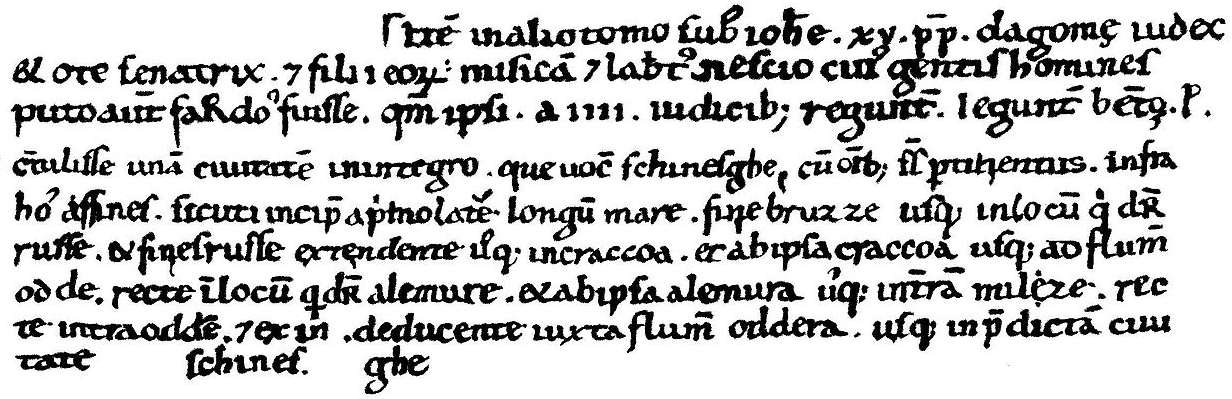 Itē in alio tomo sub iohe . xv . pp̄ . dagome iudex
& ote senatrix . ⁊ filii eoꝝ : misicā ⁊ labtꝰ nescio cuiꝰ gentis homines
puto aut̄ sardoꝰ fuisse . qm̄ ipsi . a IIII . iudicib; regunt̄ . leguntꝰ beatꝰ . p .
c̄tulisse unā ciuitatē in integro . que uoc̄ schinesghe , cū om̄ib; suis ptinentiis . infra
hoꝰ affines . sicuti incip̄ a p̄mo latere longū mare . fine bruzze usq; in locū q̄ dr̄
russe . & fines russe extendente usq; in craccoa . et ab ipsa craccoa usq; ad flum̄
odde . recte ī locū q̄ dr̄ alemure . & ab ipsa alemura usq; in t̄rā milze . rec
te intra oddē . ⁊ exin . deducente iuxta flum̄ oddera . usq; in p̄dictā ciui
tate schines. ghe